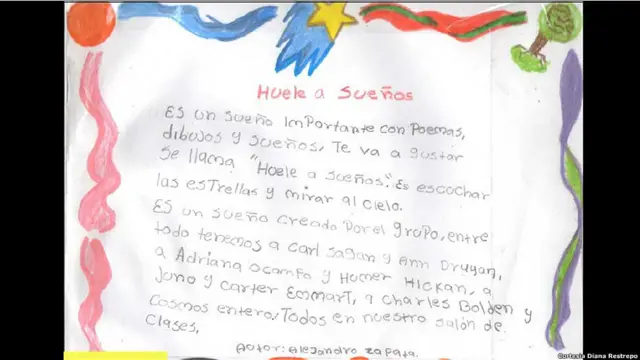 Huele a Sueños
Es un sueño importante con Poemas,
dibujos y sueños, Te va a gustar
Se llama "Huele a sueños". Es escochar
las esTrellas y mirar al cielo.
Es un sueño creado por el grupo, entre
todo tenemos a carl sagan y Ann Druyan,
a Adriana ocampo y Homer Hickan, a
Juno y carter Emmart, a charles Bolden y
Cosmos entero, Todos en nuestro salón de
clases.
Autor: Alejandro zapata.
Cortesía Diana Restrepo